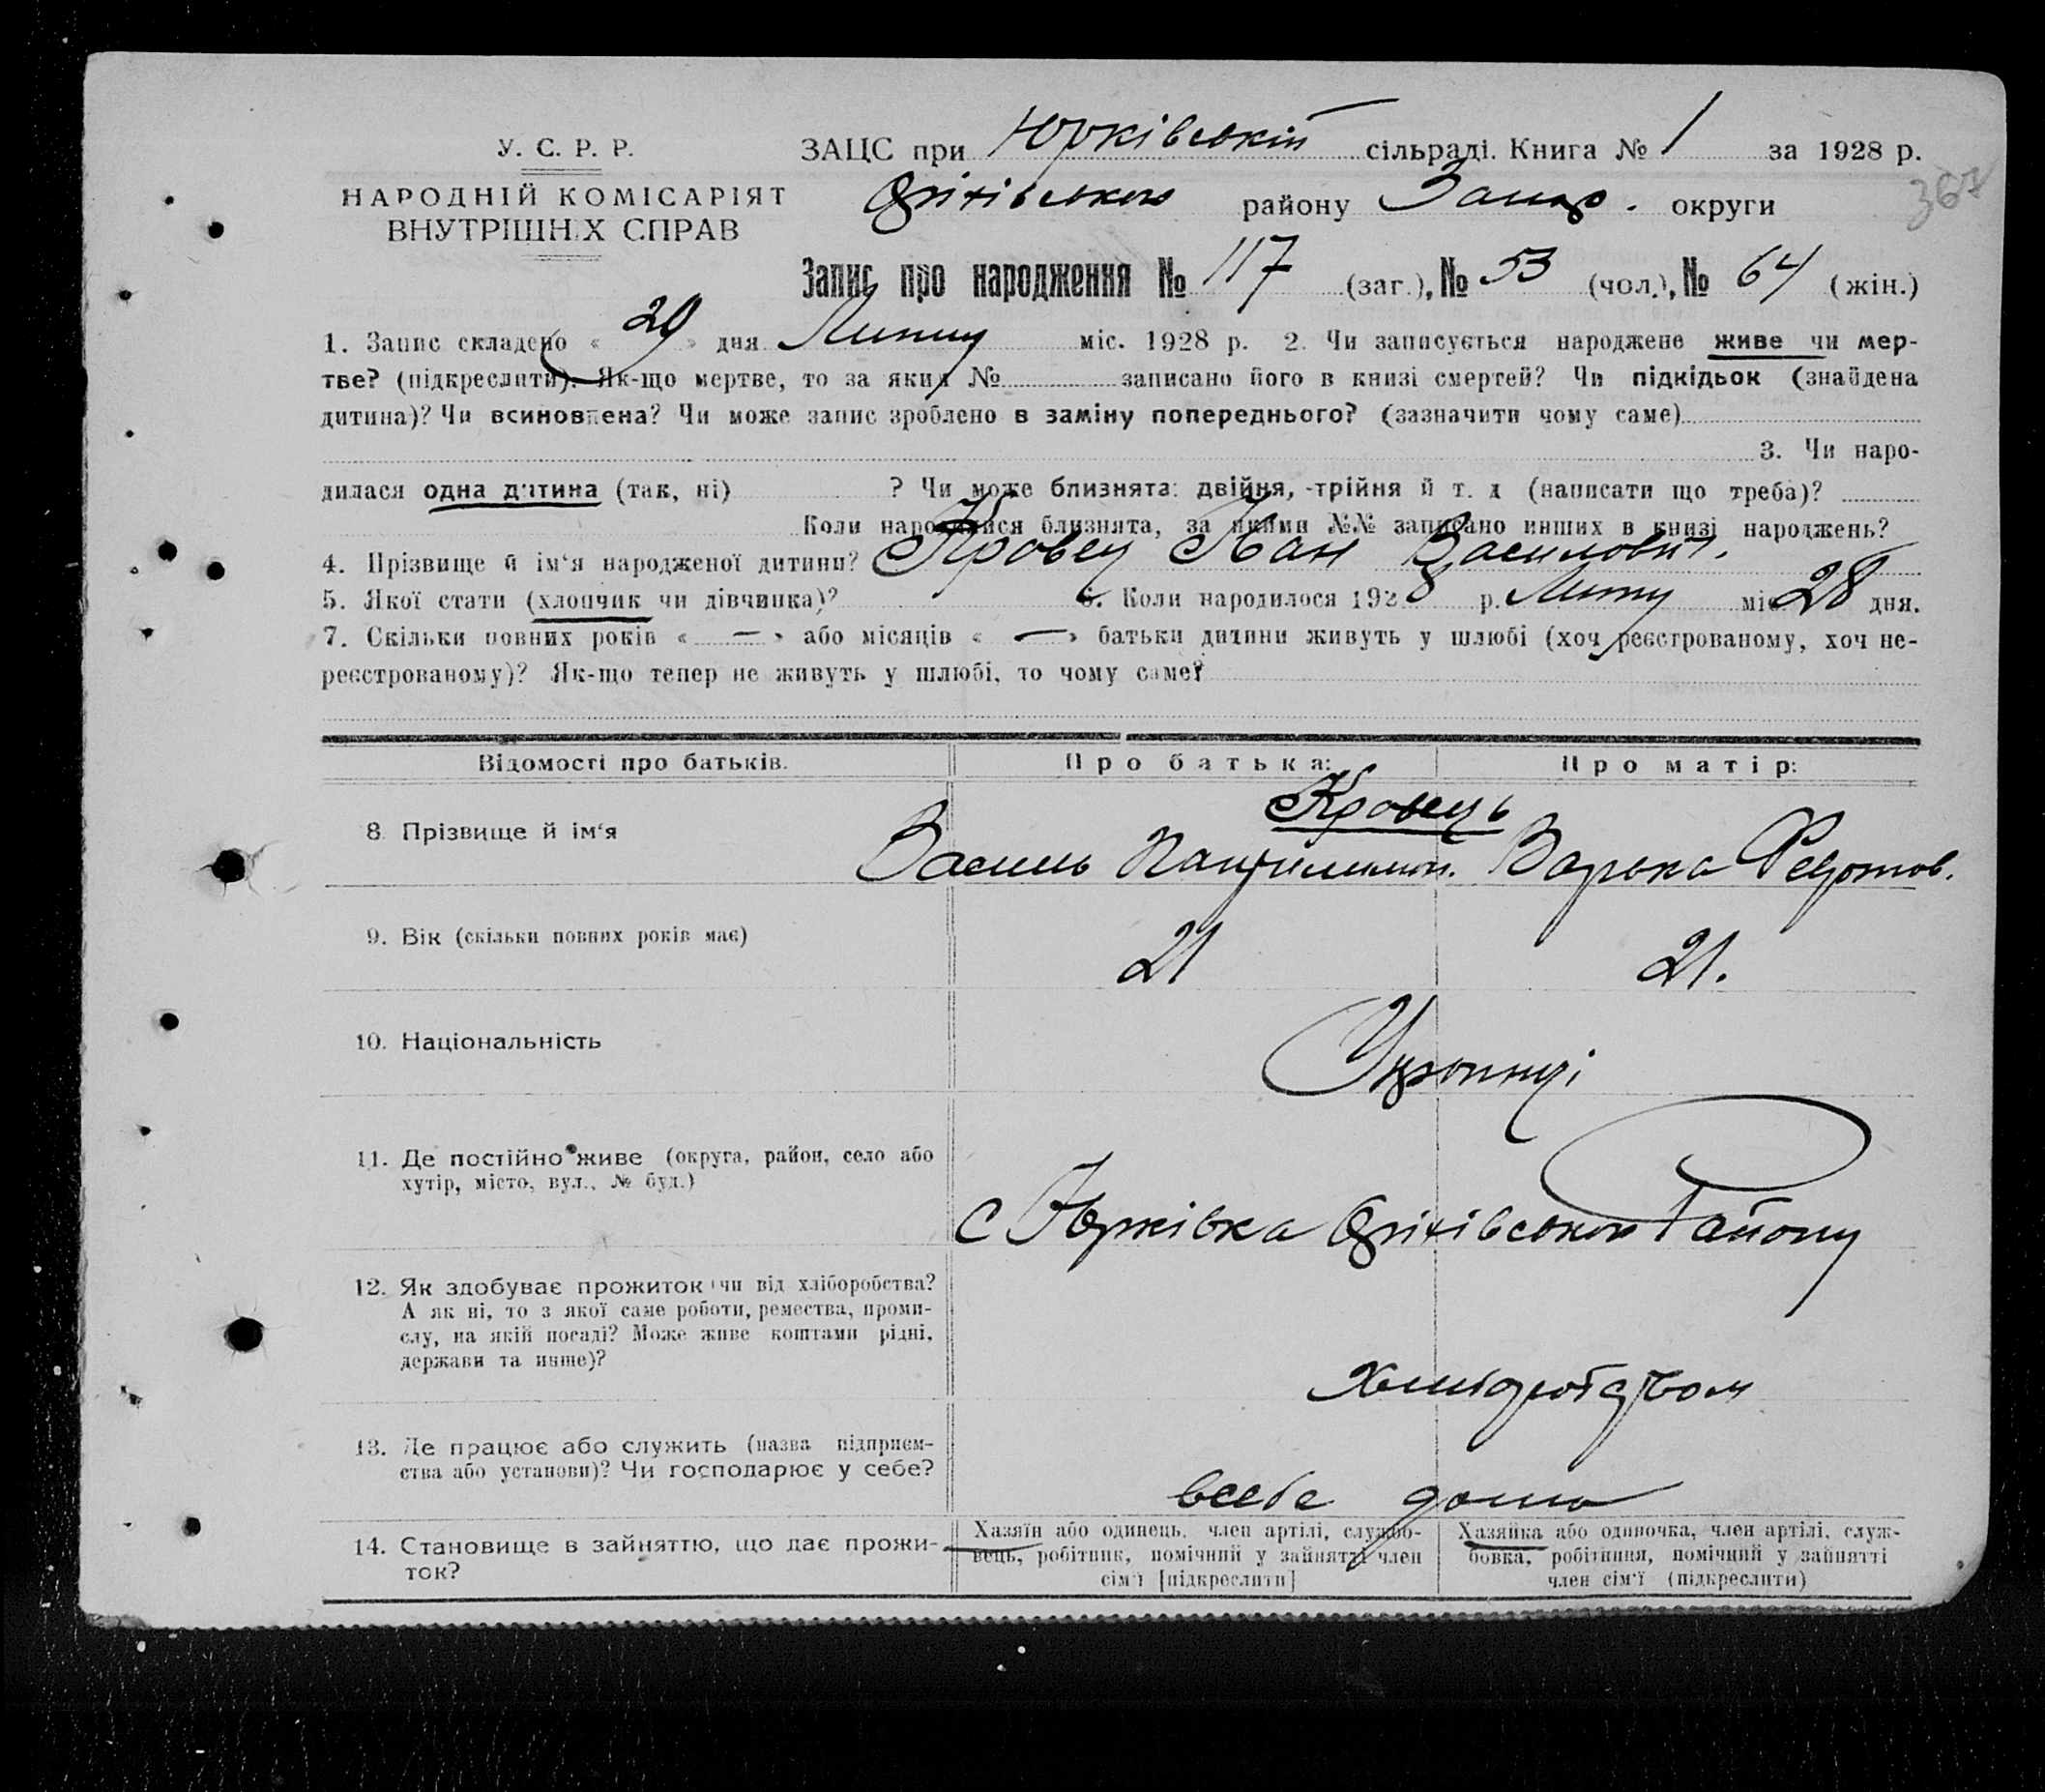 У. С. Р. Р.
НАРОДНІЙ КОМІСАРІЯТ
ВНУТРІШНІХ СПРАВ
ЗАЦС при Юрківській сільраді. Книга № 1 за 1928 р.
Оріхівського району Запор. округи
367
Запис про народження № 117 (заг.), № 53 (чол.), № 64 (жін.)
1. Запис складено « 29 » дня Липня міс. 1928 р. 2. Чи записується народжене живе чи мер-
тве? (підкреслити). Як-що мертве, то за яким № записано його в книзі смертей? Чи підкідьок (знайдена
дитина)? Чи всиновлена? Чи може запис зроблено в заміну попереднього? (зазначити чому саме)
3. Чи наро-
дилася одна дитина (так, ні) ? Чи може близнята: двійня, -трійня й т. д (написати що треба)?
Коли народилися близнята, за якими №№ записано инших в книзі народжень?
4. Прізвище й ім‘я народженої дитини? Кровец Іван Василович.
5. Якої стати (хлопчик чи дівчинка)? 6. Коли народилося 1928 р. Липня міс. 28 дня.
7. Скільки повних років « — » або місяців « — » батьки дитини живуть у шлюбі (хоч реєстрованому, хоч не-
реєстрованому)? Як-що тепер не живуть у шлюбі, то чому саме?
Відомості про батьків. Про батька: Про матір:
Кровець
8. Прізвище й ім‘я Василь Варька Федотов.
9. Вік (скільки повних років має) 21 21.
10. Національність Українці
11. Де постійно живе (округа, район, село або
хутір, місто, вул., № буд.)
С Юрківка Оріхівського Району
12. Як здобуває прожиток (чи від хліборобства?
А як ні, то з якої саме роботи, ремества, проми-
слу, на якій посаді? Може живе коштами рідні,
держави та инше)?
Хліборобством
13. Де працює або служить (назва підприєм-
ства або установи)? Чи господарює у себе?
всебе дома
14. Становище в зайняттю, що дає прожи-
ток?
Хазяїн або одинець, член артілі, службо-
вець, робітник, помічний у зайнятті член
сім‘ї [підкреслити]
Хазяйка або одиночка, член артілі, служ-
бовка, робітниця, помічний у зайнятті
член сім‘ї (підкреслити)